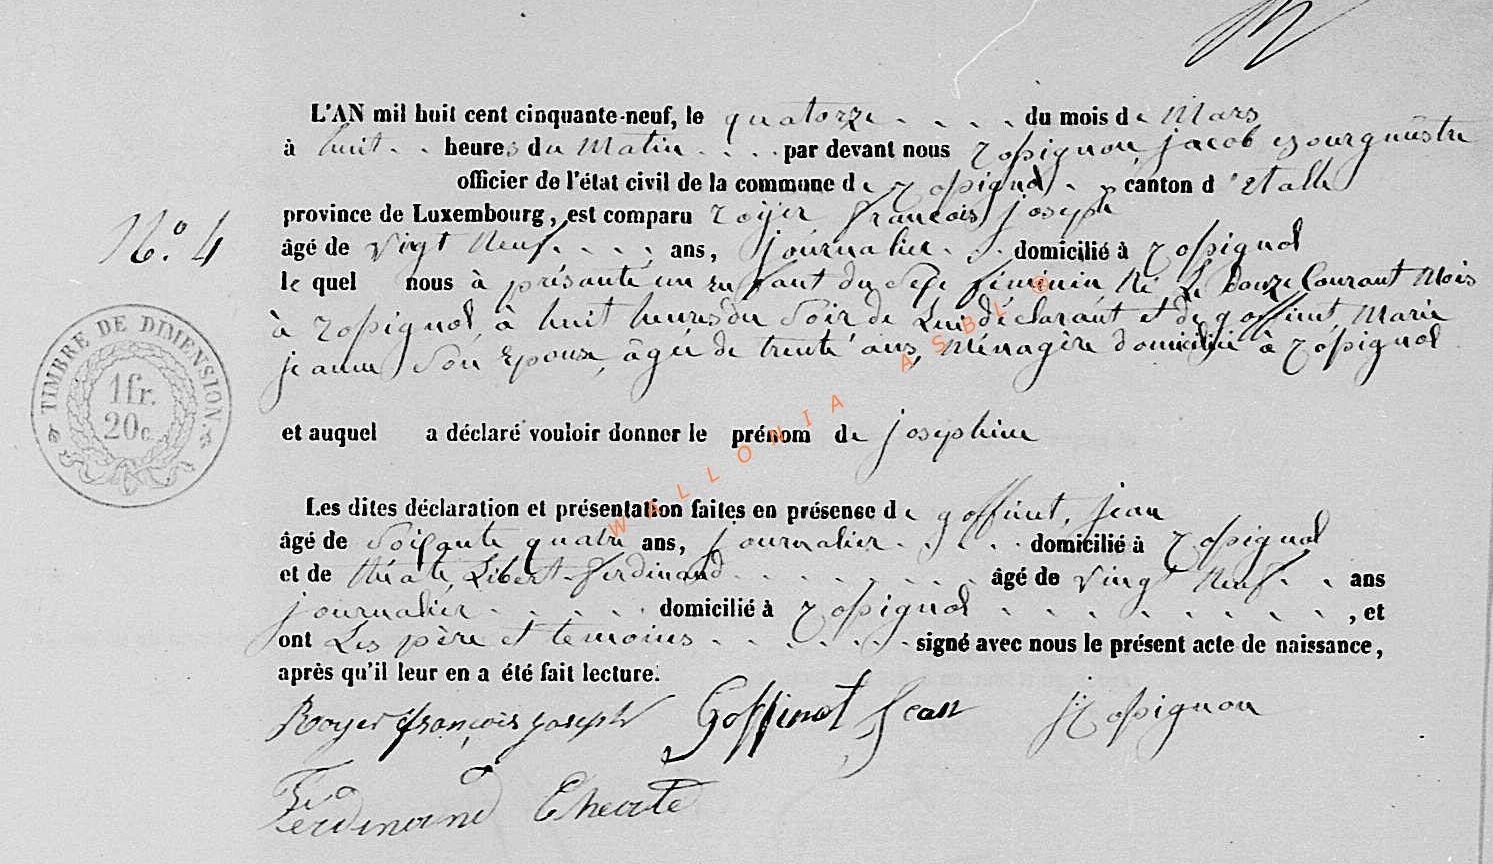 L'AN mil huit cent cinquante-neuf, le quatorze . . . . du mois de Mars
à huit . . heures du Matin . . . . par devant nous rossignon, jacob Bourgmestre
officier de l'état civil de la commune de rossignol . canton d'Etalle
province de Luxembourg, est comparu royer françois joseph
N.º 4
âgé de Vingt Neuf . . . . ans, journalier . . . domicilié à rossignol
le quel nous à présanté un enfant du Sexe féminin Né Le Douze Courant Mois
à rossignol, à huit heures du Soir de Lui déclarant et de goffinet, Marie
jeanne Son Epouse, âgée de trente ans, Ménagère domicilié à rossignol
TIMBRE DE DIMENSION.
1fr.
20c.
et auquel a déclaré vouloir donner le prénom de josephine
Les dites déclaration et présentation faites en présense de goffinet, jean
âgé de Soixante quatre ans, journalier . . . . . domicilié à rossignol
et de théate, Libert-ferdinand . . . . . . . . âgé de Vingt Neuf . . ans
journalier . . . . . domicilié à rossignol . . . . . . . . , et
ont Les père et temoins . . . . . . signé avec nous le présent acte de naissance,
après qu'il leur en a été fait lecture.
Royer françois joseph Goffinet Jean J Rossignon
Ferdinand Theate
WALLONIA ASBL ©